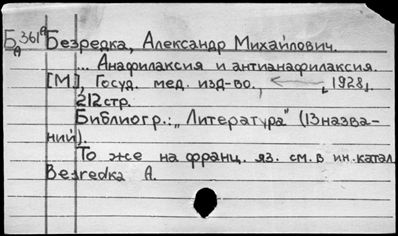 Б 361 а Безредка, Александр Михайлович.
А
... Анафилаксия и антианафилаксия.
[М], Госуд. мед. изд-во., 1928,
212 стр.
Библиогр.: „Литература" (13 назва-
ний).
То же на франц. яз. см. в ин. катал.
Besredka A.